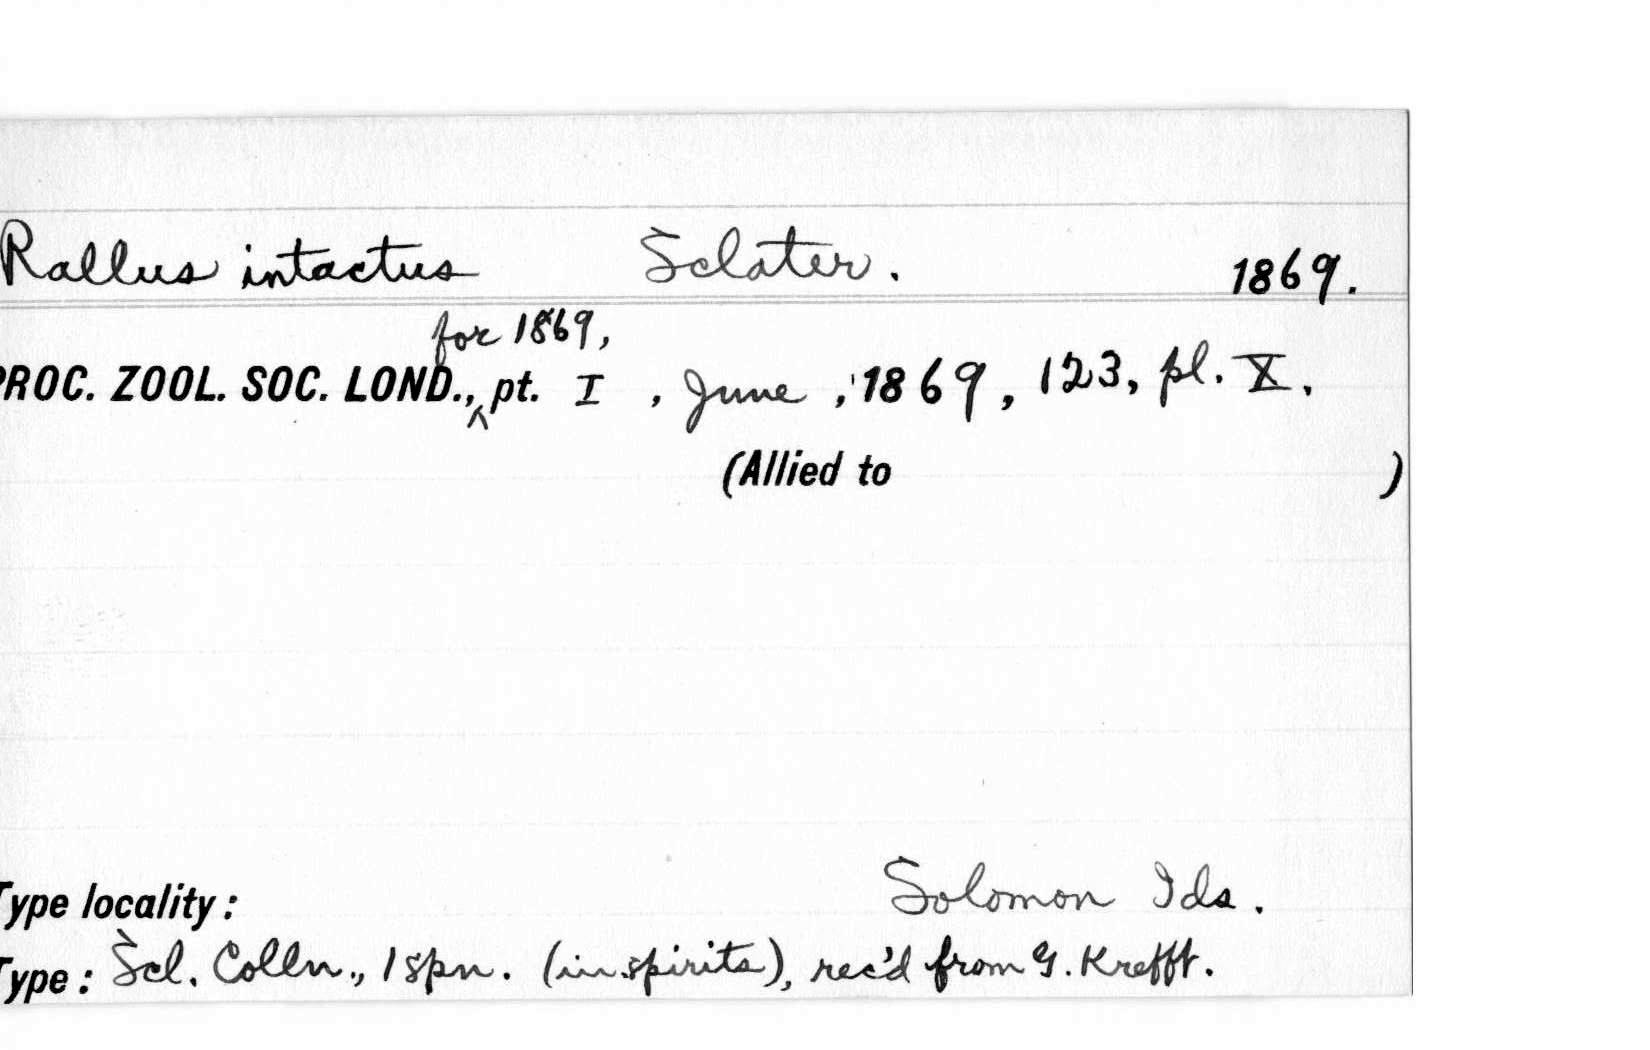 Rallus intactus Sclater. 1869.
for 1869,
PROC. ZOOL. SOC. LOND., ^ pt. I , June , 1869 , 123, pl. X.
(Allied to )
Type locality : Solomon Ids .
Type : Scl. Colln., 1 spn. (in spirits), rec'd from G. Krefft.